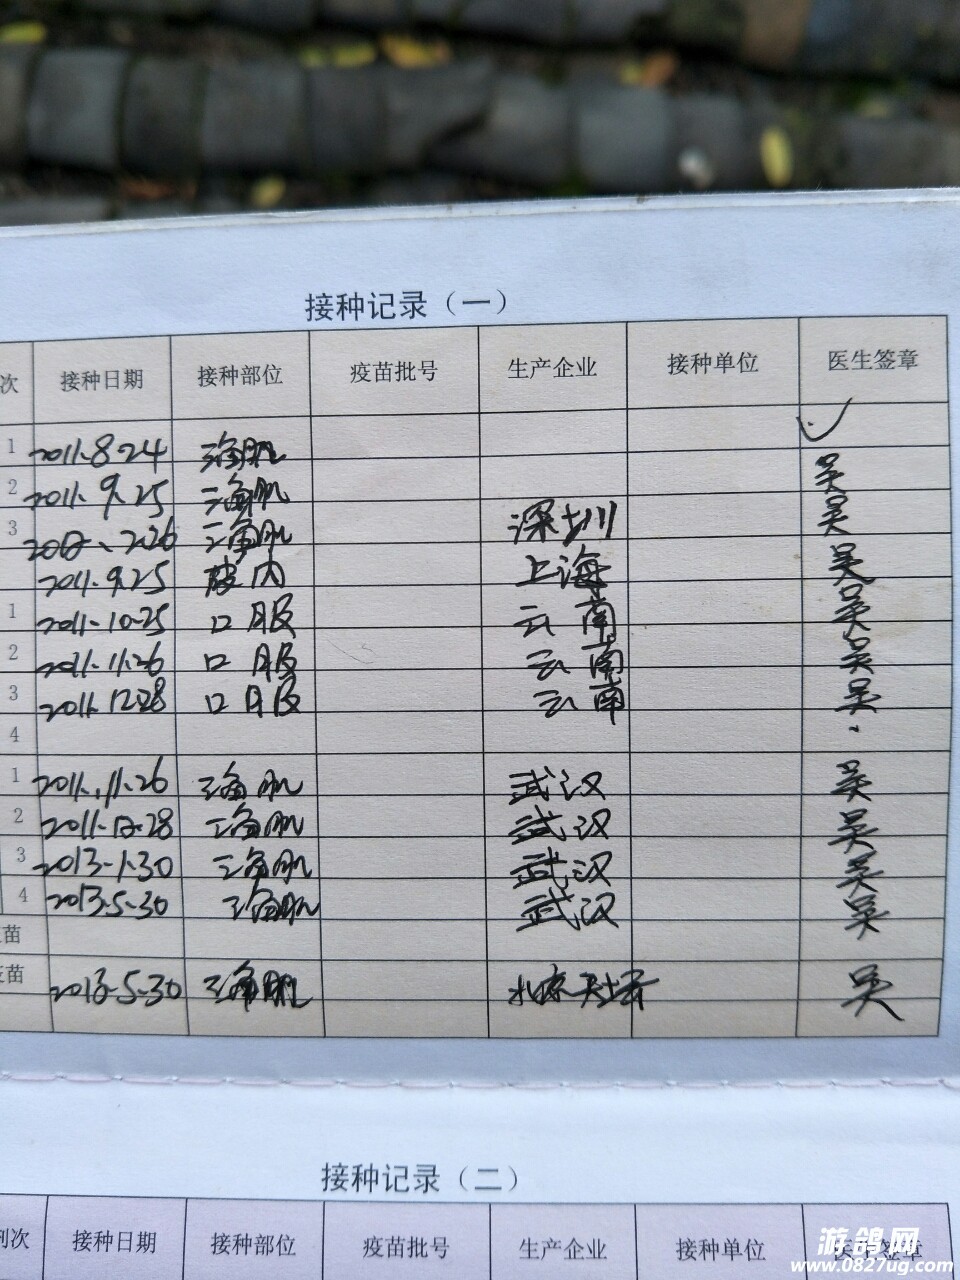 接种记录（一）
次 接种日期 接种部位 疫苗批号 生产企业 接种单位 医生签章
1 2011.8.24 三角肌
2 2011.9.25 三角肌 吴
3 2.26 三角肌 深圳 吴
2011.9.25 皮内 上海 吴
1 2011.10.25 口服 云南 吴
2 2011.11.26 口服 云南 吴
3 2011.12.28 口服 云南 吴
4
1 2011.11.26 三角肌 武汉 吴
2 2011.12.28 三角肌 武汉 吴
3 2013.1.30 三角肌 武汉 吴
4 2013.5.30 三角肌 武汉 吴
苗
疫苗 2013.5.30 三角肌 北京天坛 吴
接种记录（二）
剂次 接种日期 接种部位 疫苗批号 生产企业 接种单位 医生签章
游鸽网
www.0827ug.com